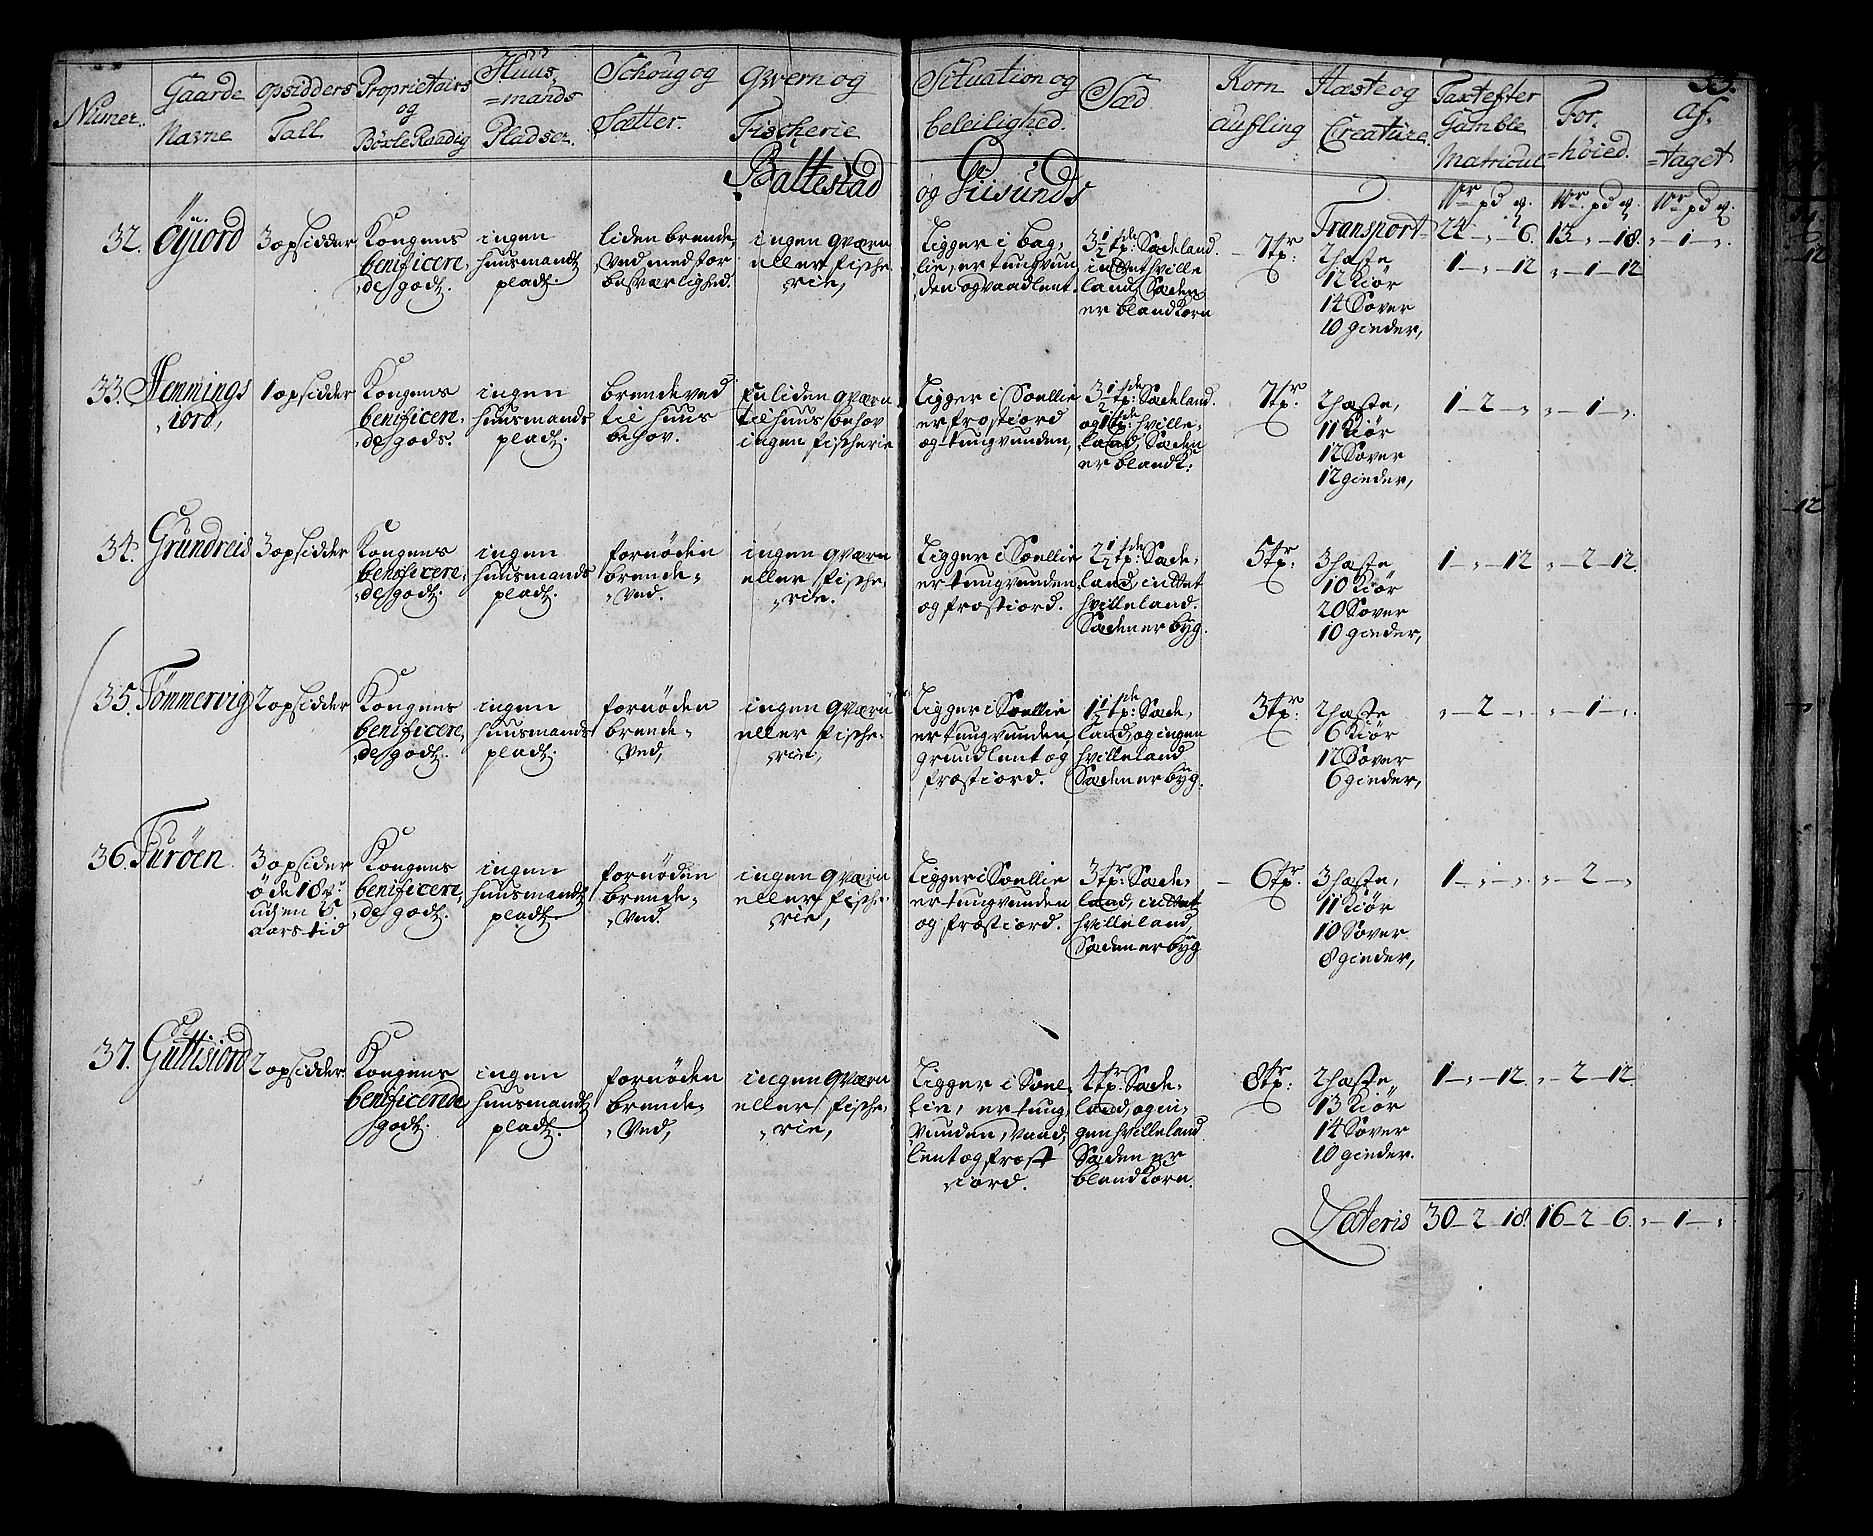 33.
Numer.
Gaarde
Nafne
opsidders
Tall
Proprietairs
og
Böxle Raadig
Huus,
=mands
Pladser.
Schoug og
Sætter.
Qvern og
Fischerie
Situation og
beleilighed.
Sæd
Korn
aufling
Hæste og
Creature.
Taxt efter
Gamble
Matricul
For,
=höied.
Af,
=taget
Baltestad og Giisunds
pd
pd
pd
Transport 22 - „ - 6. 13 - „ - 18. „ - 1 - „
32. Öyiord
3 opsidder
Kongens
benificere,
„de godz.
ingen
huusmandz
pladz.
liden brende,
Ved med for
besværlighed.
ingen qværn
eller fische
„rie,
Ligger i bag,
lie, er tungvun
„den og vaadlent.
3½ tp: Sædeland.
inttet hville
land, Sæden
er blandkorn
7 tp:
2 hæste
12 kiör
14 Sover
10 gieder,
1 - „ - 12
„ - 1 - 12
33. Hemmings
„iord,
1 opsidder
Kongens
benificere,
„de gods.
ingen
huusmands
pladz.
brendeved
til huus
behov.
En liden qværn
til huus behov
ingen fischerie
Ligger i Soellie
er frostiord
og tungvunden,
3½ tp: Sædeland.
og 1 tp: hville,
land, Sæden
er blandk:
7 tp:
2 hæste,
11 kiör
12 Sover
12 gieder,
1 - 2 - „
„ - 1 - „
34. Grundreid
3 opsidder
Kongens
benificere,
„de godz.
ingen
huusmands
pladz.
fornöden
brende,
„Ved.
ingen qværn
eller fische,
„rie.
Ligger i Soellie
er tungvunden
og frostiord.
2½ tp: Sæde,
land, inttet
hvilleland.
Sæden er byg.
5 tp:
3 hæste
10 kiör
20 Sover
10 gieder,
1 - „ - 12
„ - 2 - 12
35. Tömmervig
2 opsidder
Kongens
benificere,
„de godz.
ingen
huusmands
pladz.
fornöden
brende,
„Ved,
ingen qværn
eller fische,
„rie,
Ligger i Soellie
er tungvunden,
grundlent og
frostiord.
1½ tp: Sæde,
land, og ingen
hvilleland
Sæden er byg.
3 tp:
2 hæste
6 kiör
12 Sover
6 gieder,
„ - 2 - „
„ - 1 - „
36. Furöen
3 opsider
öde 18 v:
uden
aars tid
Kongens
benificere,
„de godz.
ingen
huusmandz
pladz
fornöden
brende,
„Ved
ingen qværn
eller fische,
„rie,
Ligger i Soellie
er tungvunden
og frostiord.
3 tp: Sæde,
land, inttet
hvilleland,
Sæden er byg
6 tp:
3 hæste,
11 kiör
10 Sover
8 gieder,
1 - „ - „
„ - 2 - „
37. Guttisiord
2 opsidder.
Kongens
benificerede
godz.
ingen
huusmandz
pladz.
fornöden
brende,
„Ved,
ingen qværn
eller fische,
„rie,
Ligger i Soel,
lie, er tung,
vunden, vaad,
lent og frost
„iord.
4 tp: Sæde,
land, og in,
gen hvilleland
Sæden er
blandkorn.
8 tp:
2 hæste
13 kiör
14 Sover
10 gieder.
1 - „ - 12
„ - 2 - 12
Lateris 30 - 2 - 18. 16 - 2 - 6. „ - 1 - „